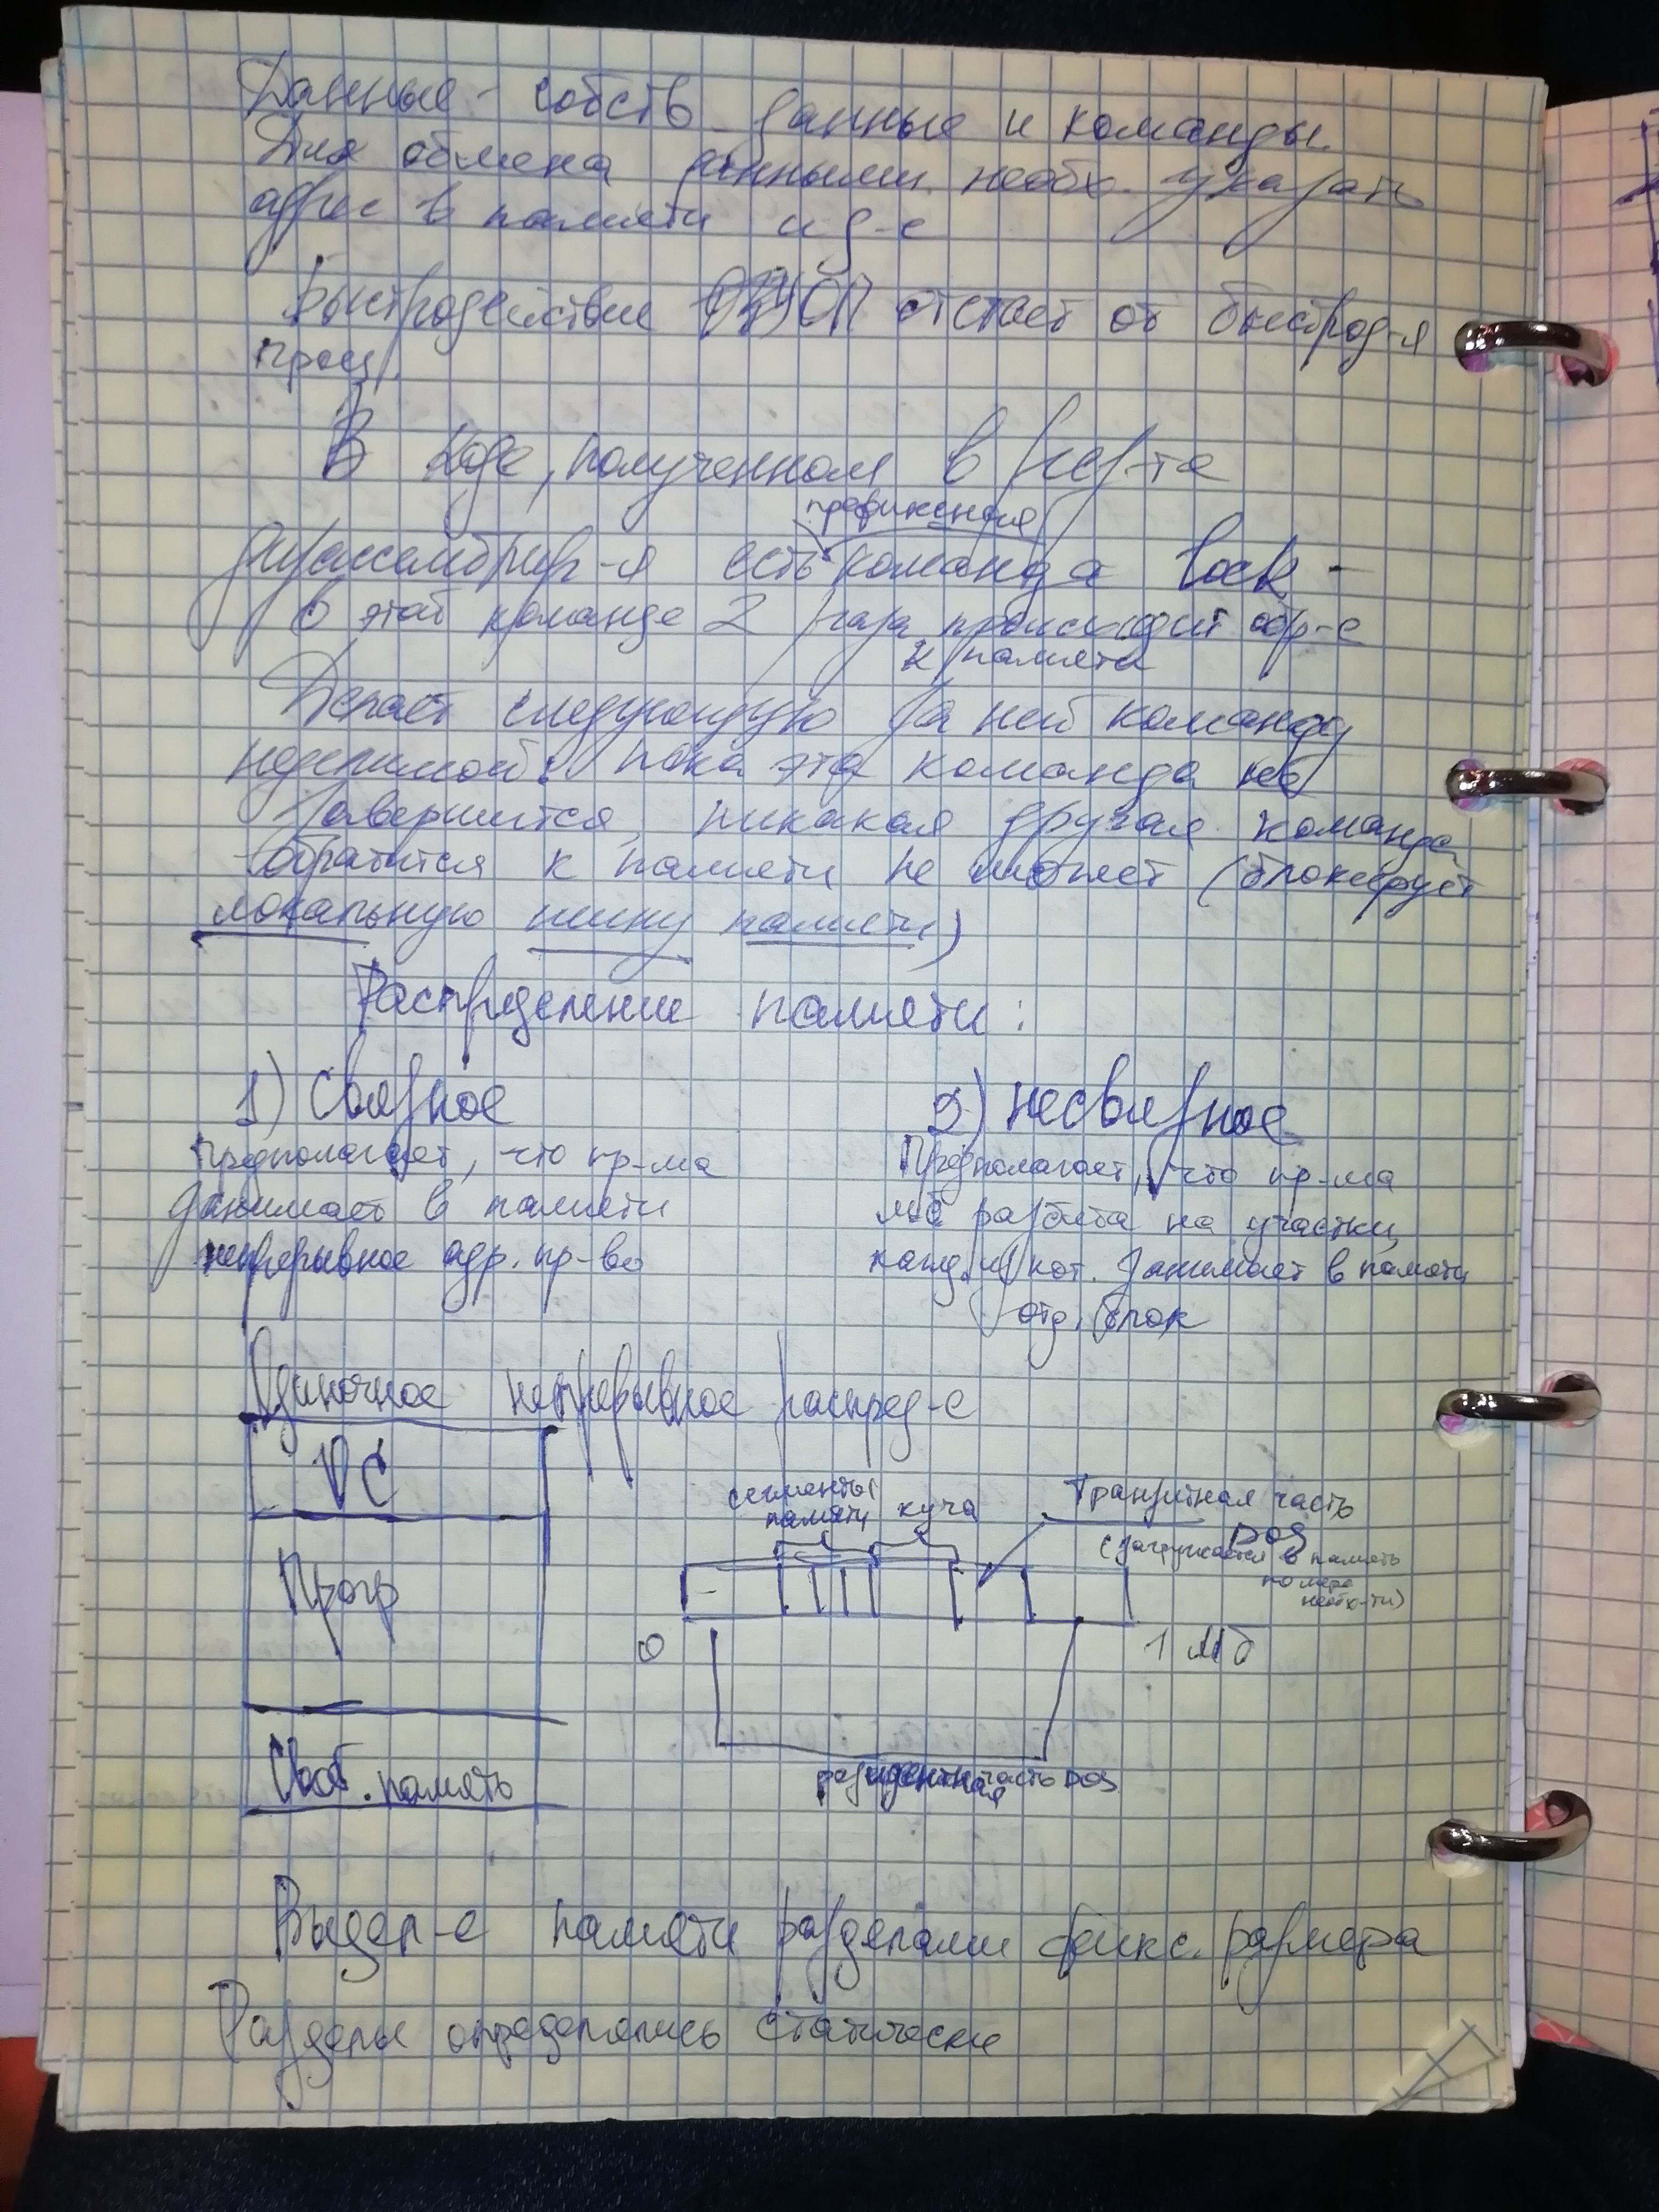 Данные - собств. данные и команды.
Для обмена данными необх. указать
адрес в памяти и д-е
Быстродействие ОП отстает от быстрод-я
проц.
В коде, полученном в рез-те
префиксная
дизассемблир-я есть команда lock -
в этой команде 2 раза происходит обр-е
к памяти
Делает следующую за ней команду
неделимой: пока эта команда не
завершится, никакая другая команда
обратится к памяти не может (блокирует
локальную шину памяти)
Распределение памяти:
1) Связное
2) несвязное
Предполагает, что пр-ма
занимает в памяти
непрерывное адр. пр-во
Предполагает, что пр-ма
м.б разбита на участки,
кажд. из кот. занимает в памяти
отд. блок
Одиночное непрерывное распред-е
ОС
Прогр
Своб. память
сегменты
памяти
куча
Транзитная часть
DOS
(загружается в память
по мере
необх-ти)
0
1 Мб
резидентная часть DOS
Выдел-е памяти разделами фикс. размера
Разделы определялись статически